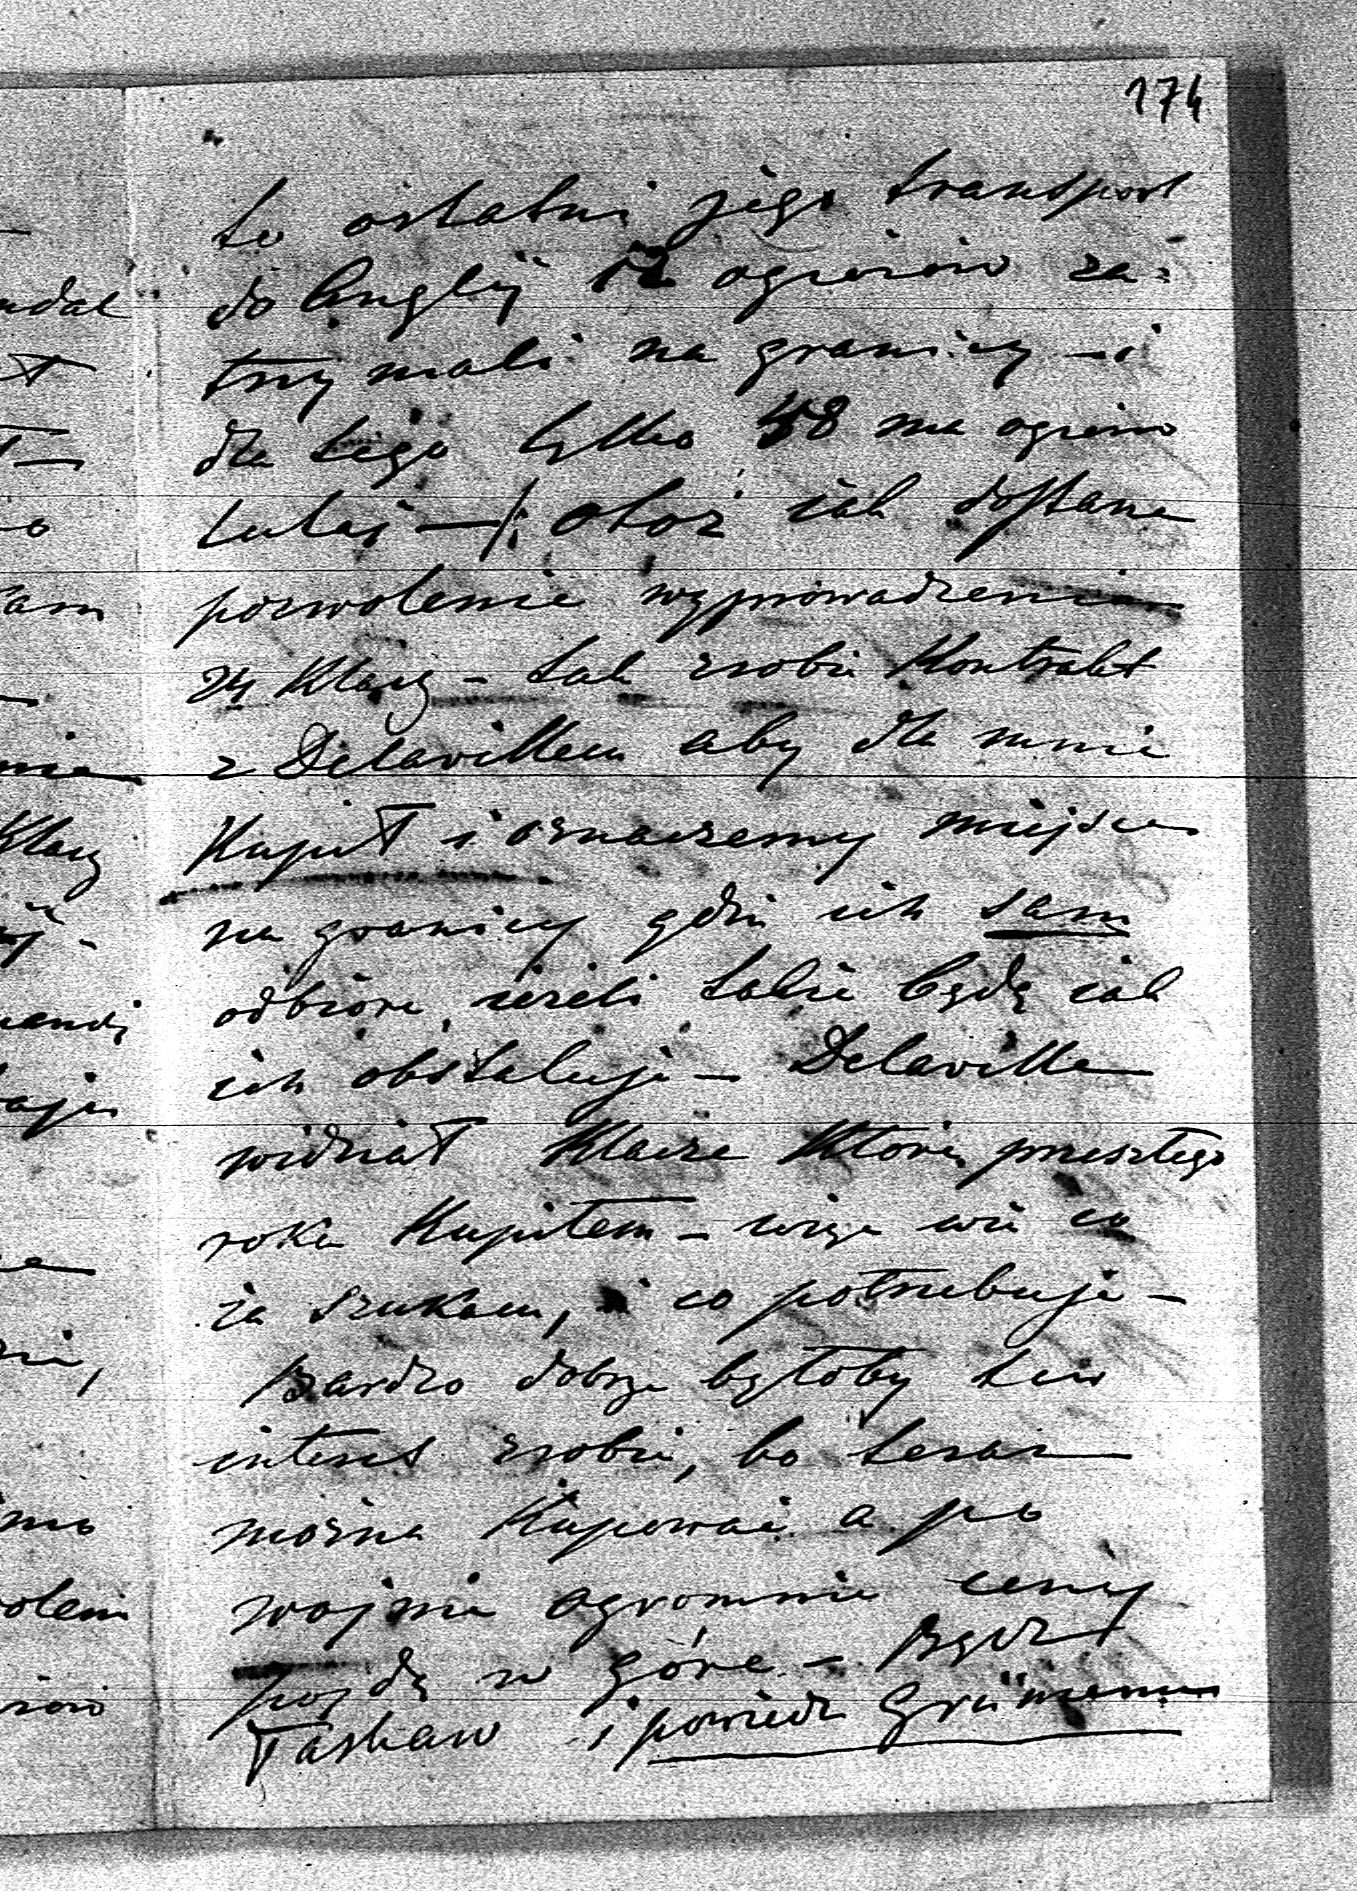 174
to ostatni jego transport
do Anglij 12 ogierow za-
trzymali na granicy – i
dla tego tylko 48 ma ogierow
tutaj — /: otoż iak dostane
pozwolenie wyprowadzenia
24 Klaczy – tak zrobie Kontrakt
z Delavillem aby dla mnie
Kupił i oznaczemy miejsce
na granicy gdzie ich sam
odbiore, iezeli takie będą iak
ich obstaluje – Delaville
widział Klacze Które przeszłego
roku Kupiłem – więc wie co
ia szukam, i co potrzebuje –
Bardzo dobrze byłoby ten
interes zrobić, bo teraz
można Kupować a po
wojnie ogromnie ceny
pojdą w górę – Bądz
Łaskaw i powiedz Grünemu
udał
ił
ił —
o
nie
Klacz
olenie